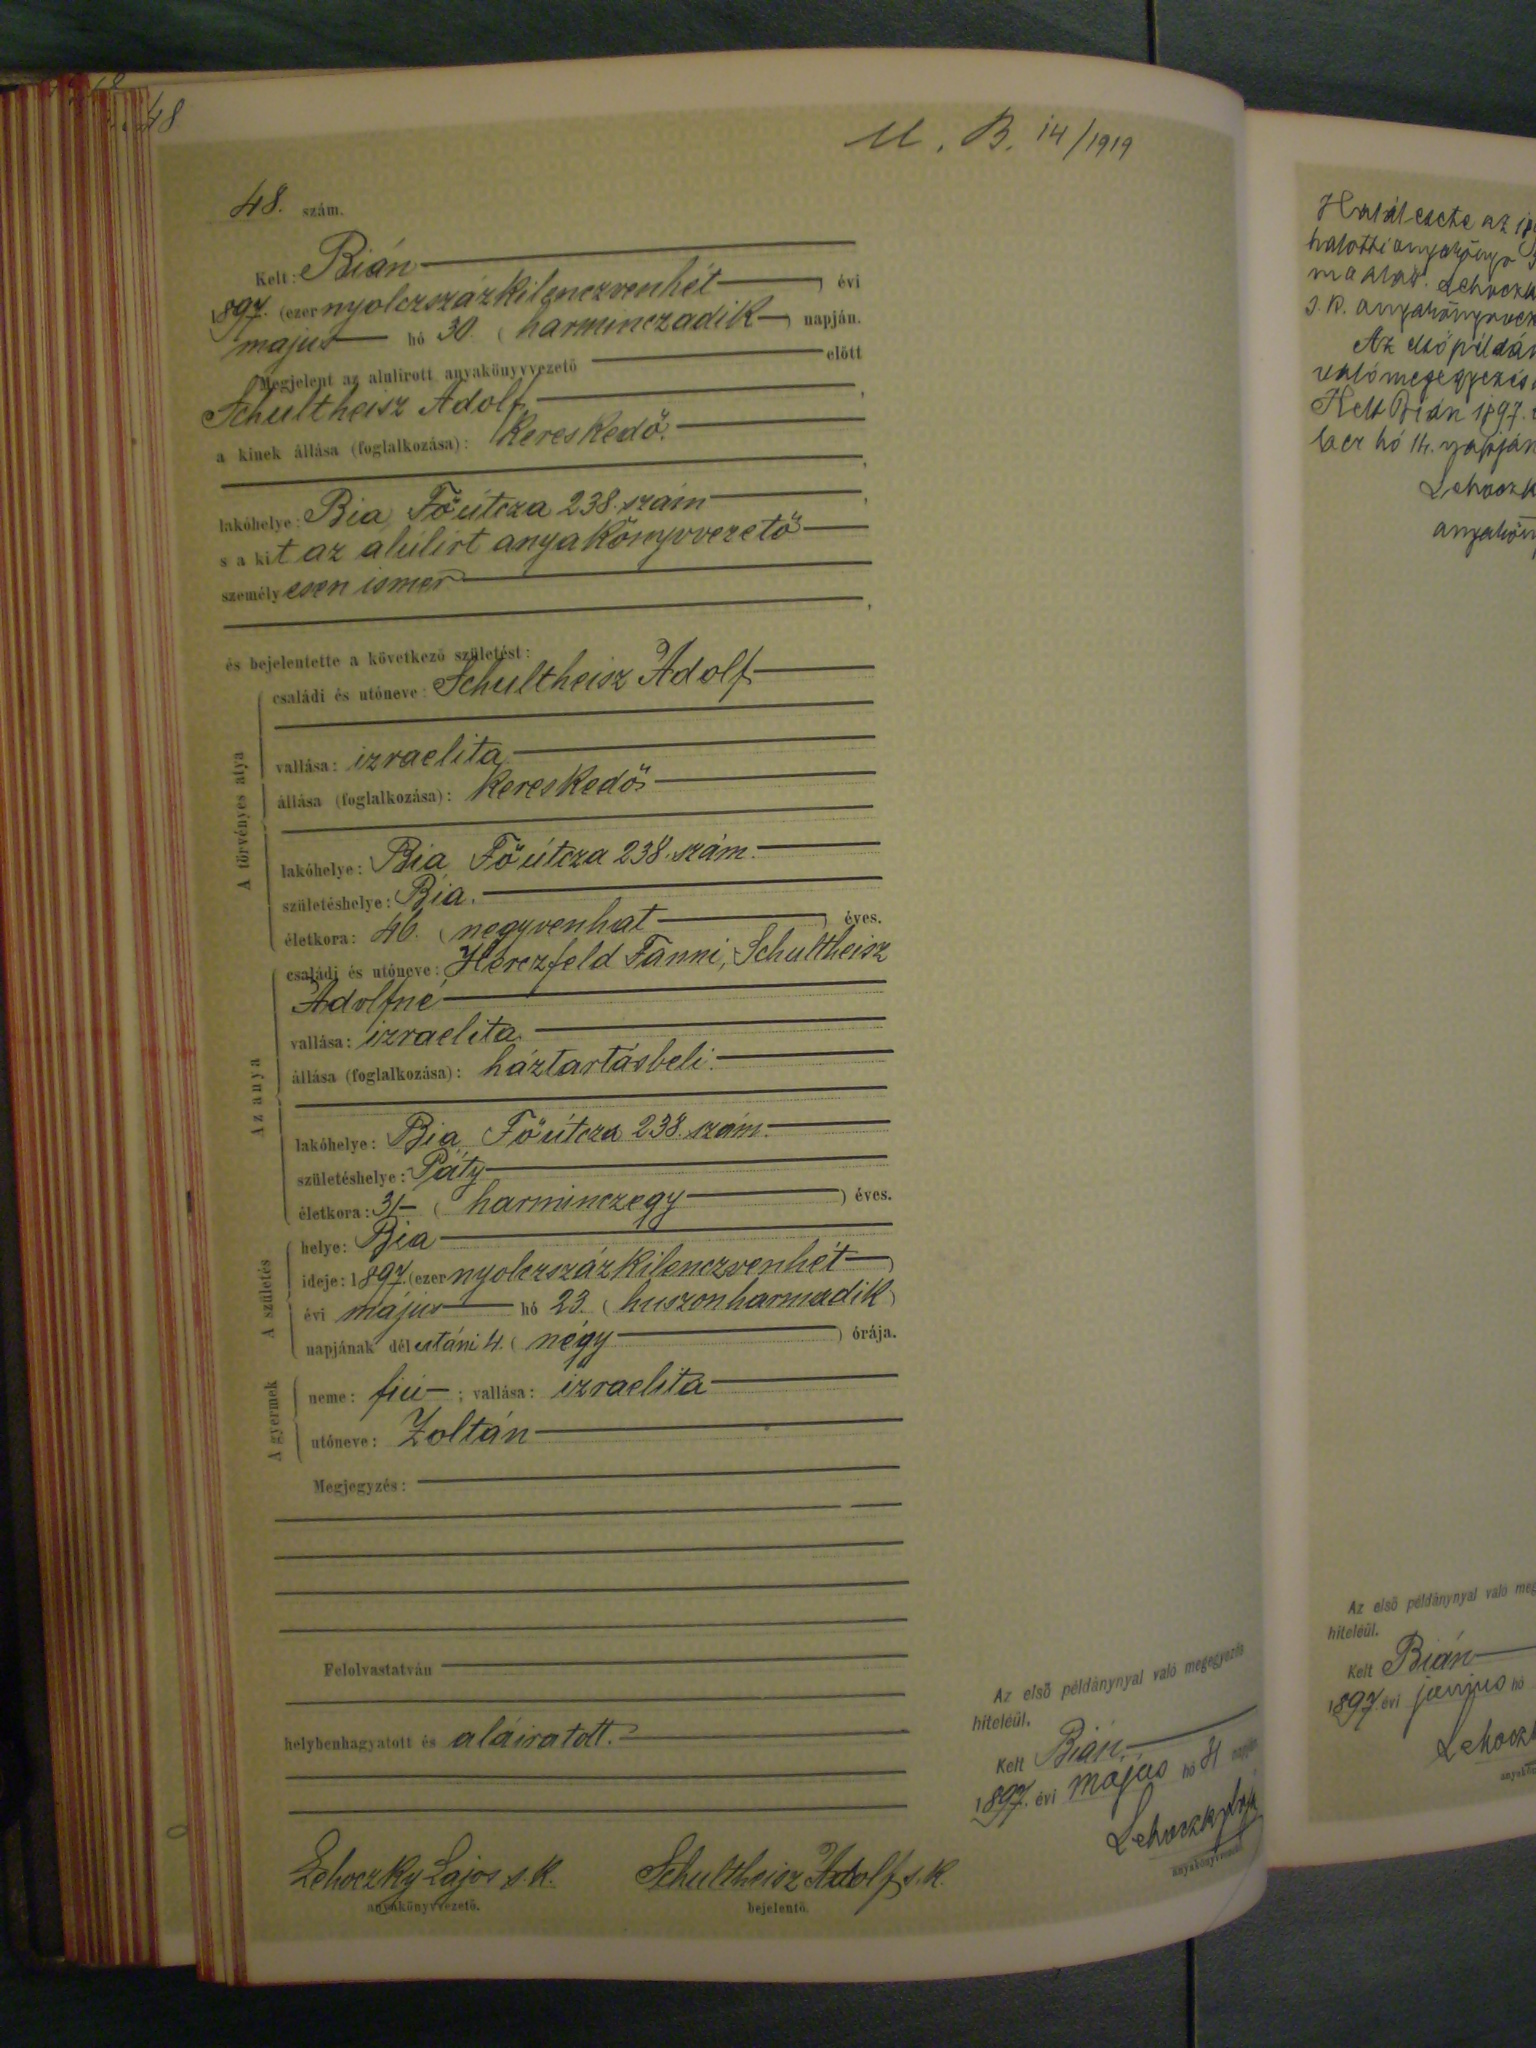 48
M. B. 14/1919
48. szám.
Kelt: Bián
1897. (ezer nyolczszázkilenczvenhét) évi
május hó 30. (harminczadik) napján.
Megjelent az alulirott anyakönyvvezető előtt
Schultheisz Adolf,
a kinek állása (foglalkozása): kereskedő.
lakóhelye: Bia Főútcza 238. szám,
s a kit az alúlírt anyakönyvvezető
személyesen ismer
és bejelentette a következő születést:
A törvényes atya
családi és utóneve: Schultheisz Adolf
vallása: izraelita
állása (foglalkozása): kereskedő
lakóhelye: Bia Főútcza 238. szám.
születéshelye: Bia.
életkora: 46. (negyvenhat) éves.
Az anya
családi és utóneve: Herczfeld Fánni, Schultheisz
Adolfné
vallása: izraelita
állása (foglalkozása): háztartásbeli.
lakóhelye: Bia Főútcza 238. szám.
születéshelye: Páty
életkora: 31 (harminczegy) éves.
A születés
helye: Bia
ideje: 1897 (ezer nyolczszázkilenczvenhét)
évi május hó 23. (huszonharmadik)
napjának délutáni 4. (négy) órája.
A gyermek
neme: fiú; vallása: izraelita
utóneve: Zoltán
Megjegyzés:
Felolvastatván
helybenhagyatott és aláiratott.
Lehoczky Lajos s. k.
anyakönyvvezető.
Schultheisz Adolf s. k.
bejelentő.
Az első példánynyal való megegyezés
hiteléül.
Kelt Bián.
1897. évi május hó 31 napján
Lehoczky Lajos
anyakönyvvezető
Halálesete az
halotti
Lehoczk
Az első példán
való megegyezés
Kelt Bián 1897.
ber hó 14. napján
Lehoczk
anyakön
Az első példánynyal való meg
hiteléül.
Kelt Bián
1897 évi junjus hó
Lehoczk
anyakön